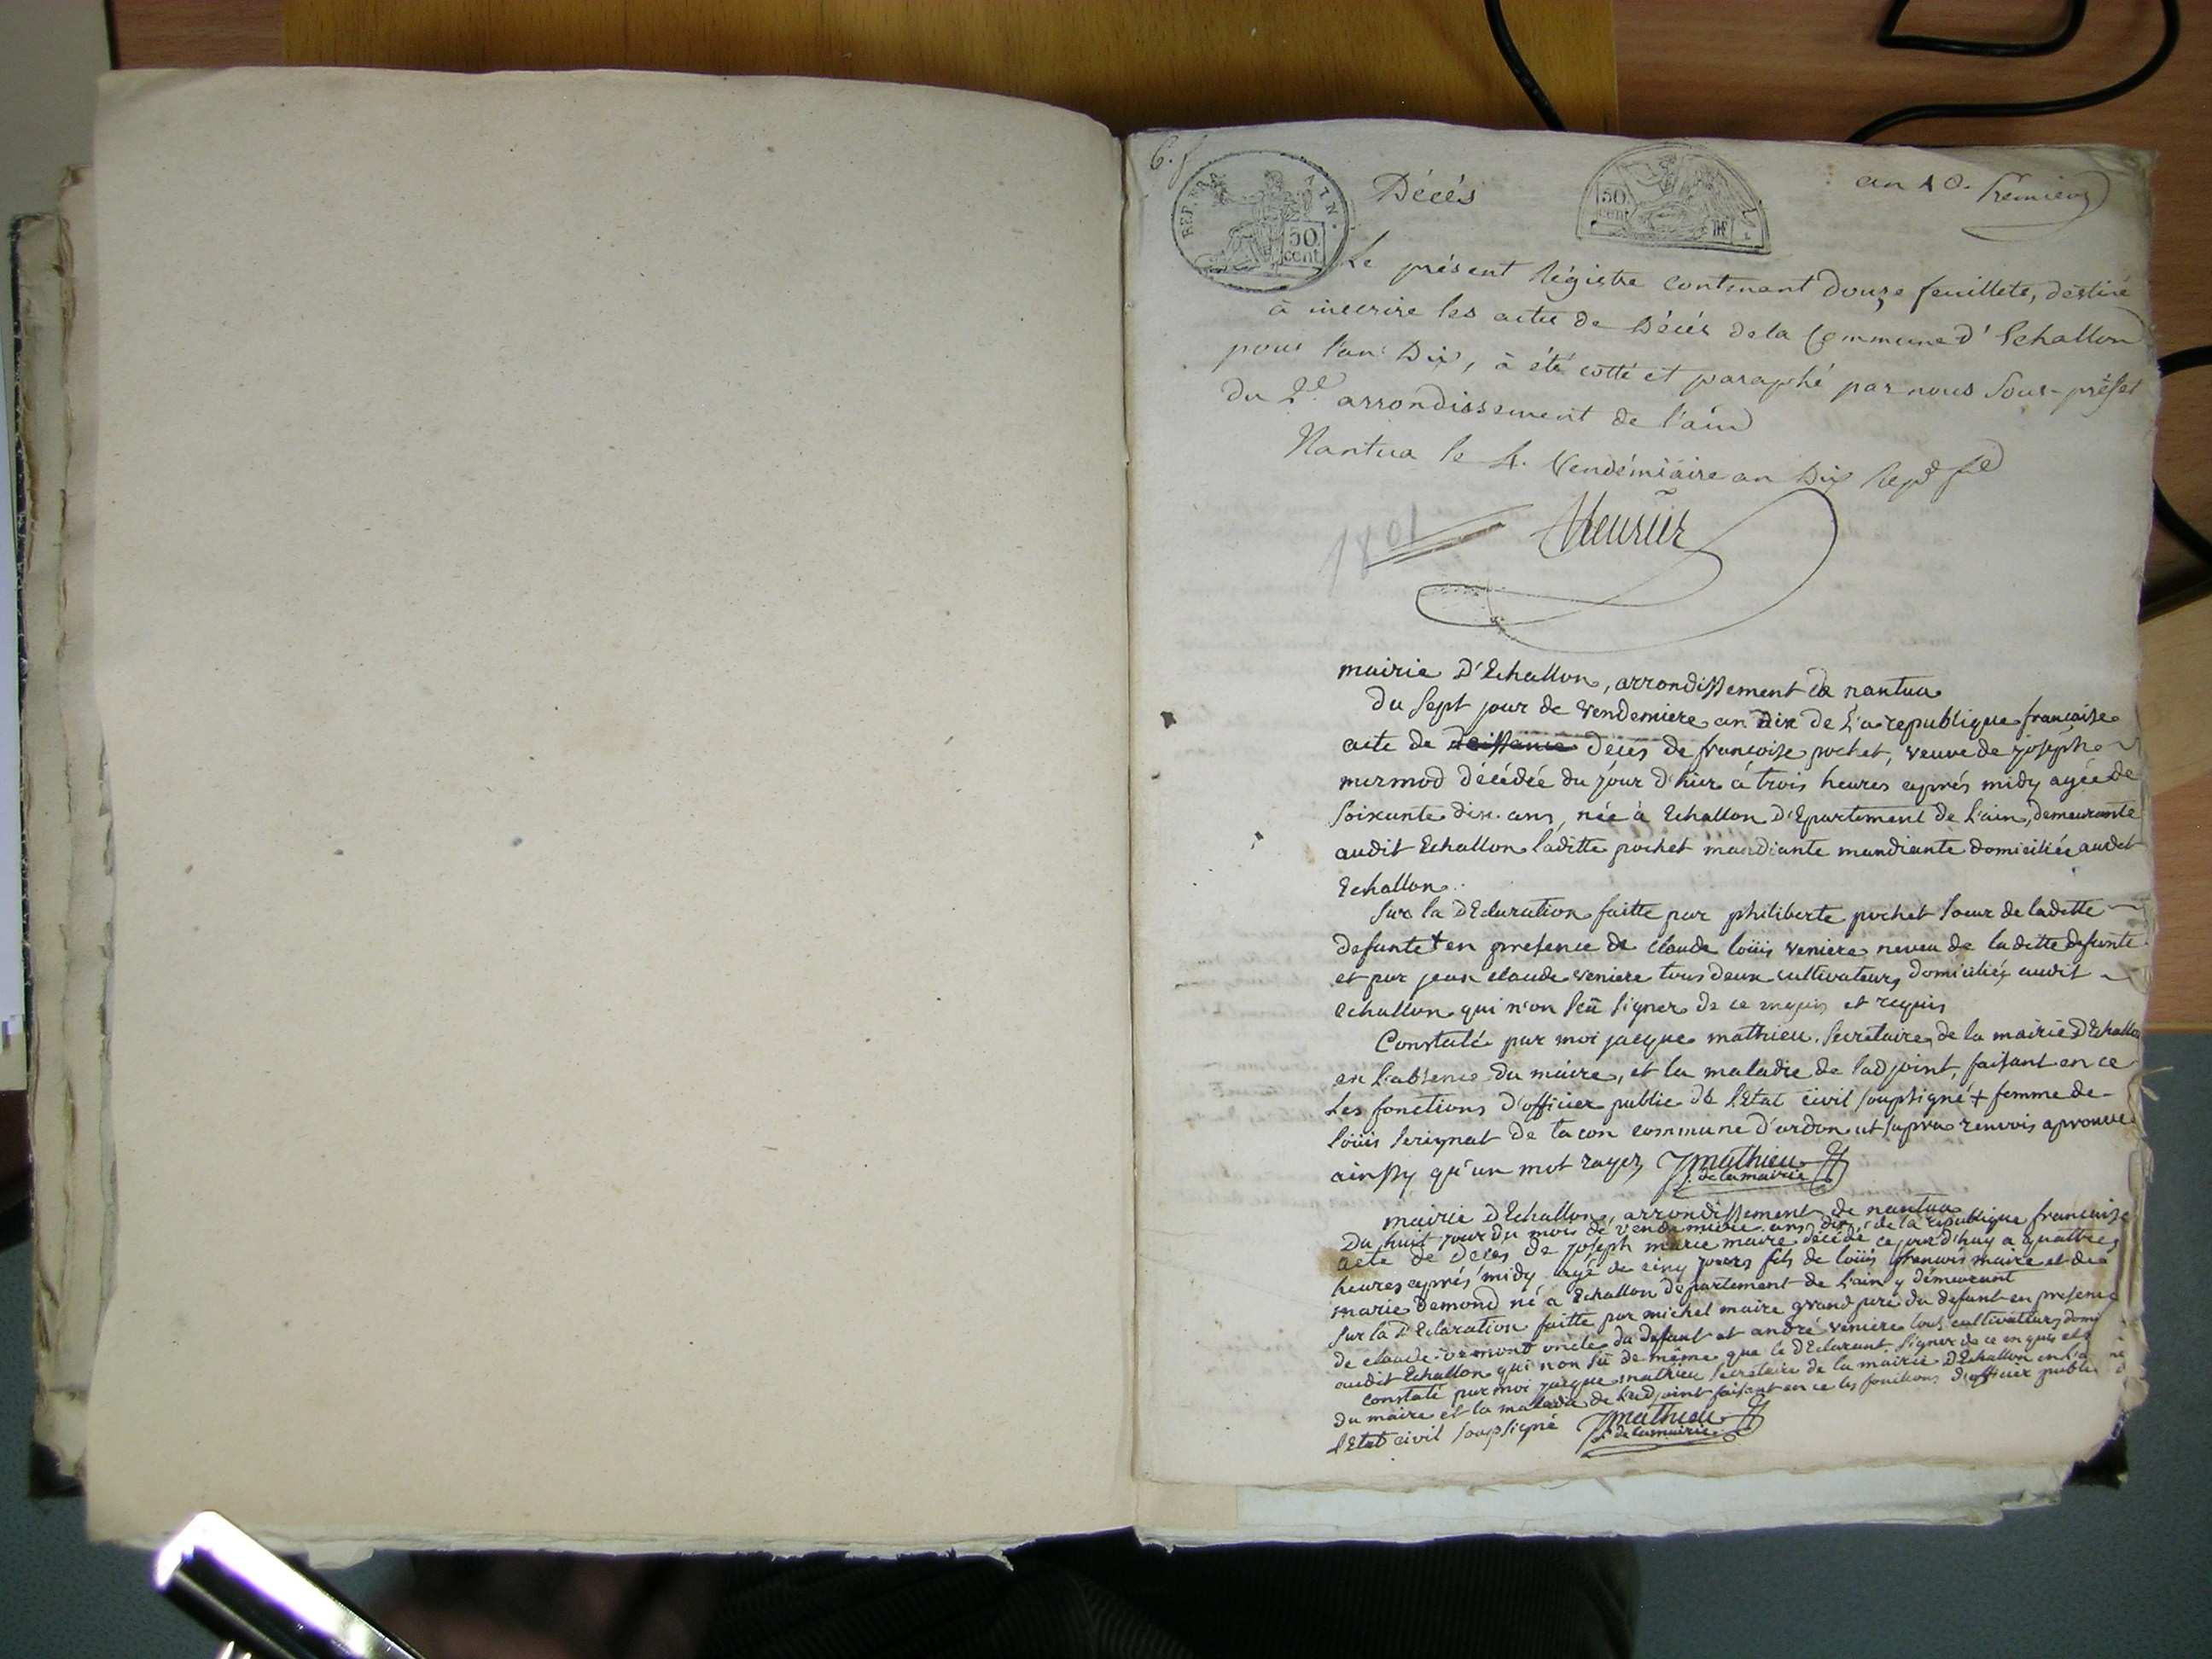 6. f
REP. FRA ATN.
50 cent
Décés
50 cent
RF
an 10. Premier
Le présent Régistre contenant douze feuillets, destiné
à inscrire les actes de Décés de la Commune d'Echallon
pour l'an Dix, à été cotté et paraphé par nous Sous-préfet
du 2e arrondissement de l'ain
Nantua le 4. Vendémiaire an Dix
1801
mairie D'Echallon, arrondissement de nantua
Du Sept jour de vendemiere an Dix de La republique françoise
acte de décés de françoise pochet, veuve de joseph
mermod décédée du jour d'hier à trois heures aprés midy agée de
soixante dix ans, née à Echallon D'Epartement de L'ain, demeurante
audit Echallon laditte pochet mandiante mandiante domiciliée audit
Echallon.
Sur la DEclaration faitte par philiberte pochet soeur de laditte
defunte + en presence de claude loüis veniere neveu de laditte defunte
et par jean claude veniere tous deux cultivateurs domiciliés audit
echallon qui n'on sçû signer de ce enquis et requis
Constaté par moi jacque mathieu Secretaire de la mairie D'Echallon
en l'absence du maire, et la maladie de ladjoint, faisant en ce
Les fonctions d'officier public de l'Etat civil soupsigné + femme de
loüis de tacon commune d'ardon ut supra renvois aprouvé
ainssy qu'un mot rayer Jmathieu
S. de la mairie
mairie D'Echallon, arrondissement de nantua
Du huit jour du mois de vendemiaire an dix, de la république françoise
acte de décés de joseph marie maire décédé ce jour d'huy a quattre
heures aprés midy agé de cinq jours fils de loüis françois maire et de
marie Demond né a Echallon département de l'ain y démeurant
sur la DEclaration faitte par michel maire grand pere du defunt en presence
de claude oncle du defunt et andré veniere tous cultivateurs domi
audit Echallon qui non sû de même que le DEclarant signer de ce enquis et
constaté par moi jacque mathieu Secretaire de la mairie D'Echallon en l'a
du maire et la maladie de l'adjoint faisant en ce les fonctions d'officier public
l'Etat civil soupsigné Jmathieu
S. de la mairie